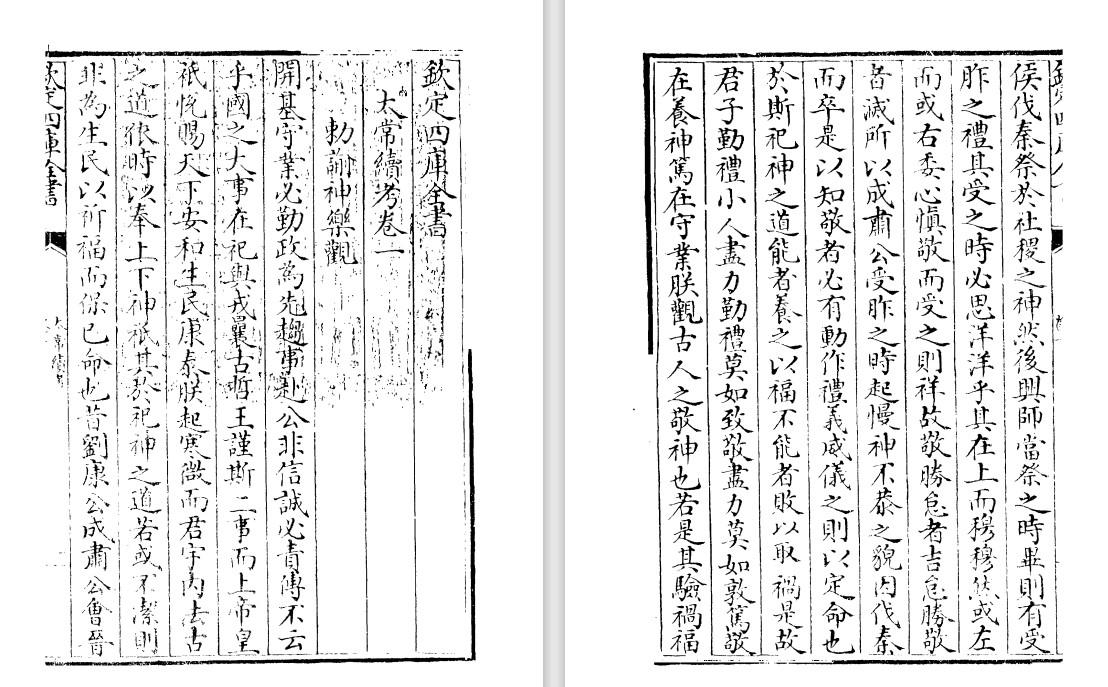 欽定四庫全書
太常續考卷一
勅諭神樂觀
開基守業必勤政為先趨事赴公非信誠必責傳不云
乎國之大事在祀與戎曩古哲王謹斯二事而上帝皇
祇悅賜天下安和生民康泰朕起寒微而君宇內法古
之道依時以奉上下神祇其於祀神之道若或不潔則
非為生民以祈福而保已命也昔劉康公成肅公會晉
欽定四庫全書
侯伐秦祭於社稷之神然後興師當祭之時畢則有受
胙之禮其受之時必思洋洋乎其在上而穆穆然或左
而或右委心慎敬而受之則祥故敬勝怠者吉怠勝敬
者滅所以成肅公受胙之時起慢神不恭之貌因伐秦
而卒是以知敬者必有動作禮義威儀之則以定命也
於斯祀神之道能者養之以福不能者敗以取禍是故
君子勤禮小人盡力勤禮莫如致敬盡力莫如敦篤敬
在養神篤在守業朕觀古人之敬神也若是其驗禍福